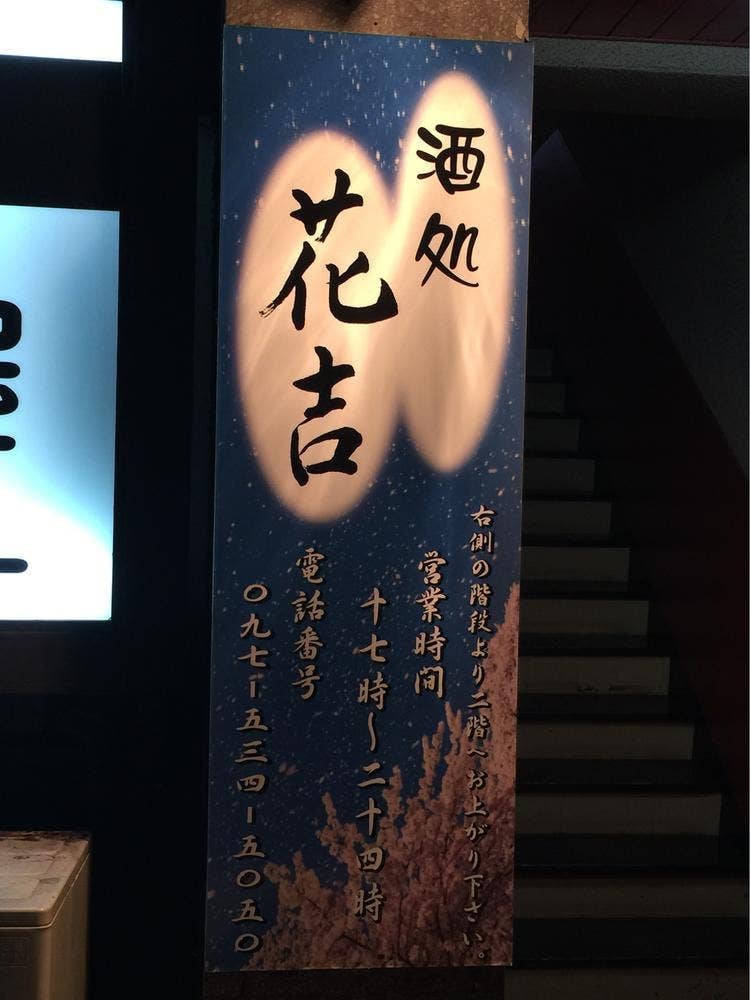 酒処
花吉
右側の階段より二階へお上がり下さい。
営業時間
十七時〜二十四時
電話番号
〇九七ー五三四ー五〇五〇